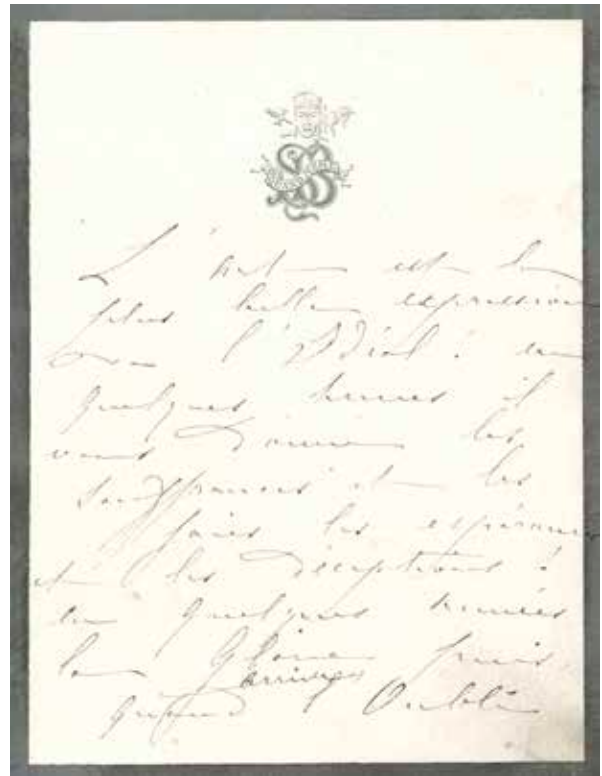 L'art est la
plus belle expression
de l'Idéal : en
quelques heures il
vous donne les
souffrances et les
joies les espérances
et les déceptions :
en quelques années
la Gloire puis
arrive
grand Oubli